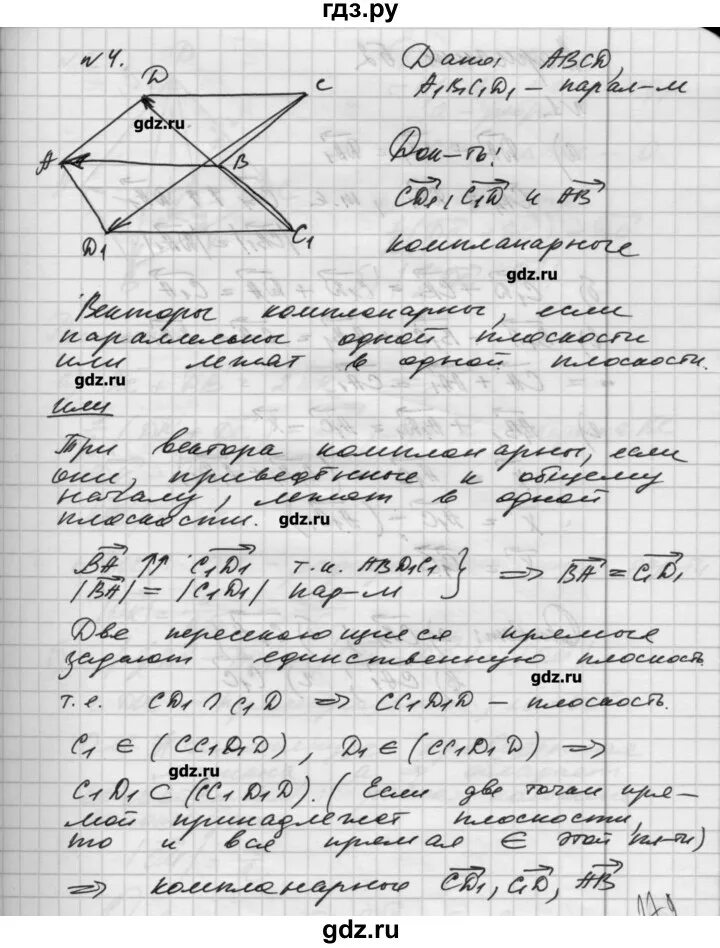 гдз.ру
№4.
Дано: ABCD,
A₁B₁C₁D₁ – парал-м
D
C
gdz.ru
A
B
D₁
C₁
Док-ть:
CD₁, C₁D и AB
компланарные
gdz.ru
Векторы компланарны, если
параллельны одной плоскости
или лежат в одной плоскости.
gdz.ru
или
Три вектора компланарны, если
они, приведённые к общему
началу, лежат в одной
плоскости. gdz.ru
BA ↑↑ C₁D₁ т.к. ABD₁C₁ } ⇒ BA = C₁D₁
|BA| = |C₁D₁| пар-м
Две пересекающиеся прямые
задают единственную плоскость
gdz.ru
т.е. CD₁ ∩ C₁D ⇒ CC₁D₁D – плоскость.
C₁ ∈ (CC₁D₁D), D₁ ∈ (CC₁D₁D) ⇒
gdz.ru
C₁D₁ ⊂ (CC₁D₁D). (Если две точки пря-
мой принадлежат плоскости,
то и вся прямая ∈ этой пл-ти)
⇒ компланарные CD₁, C₁D, AB
gdz.ru